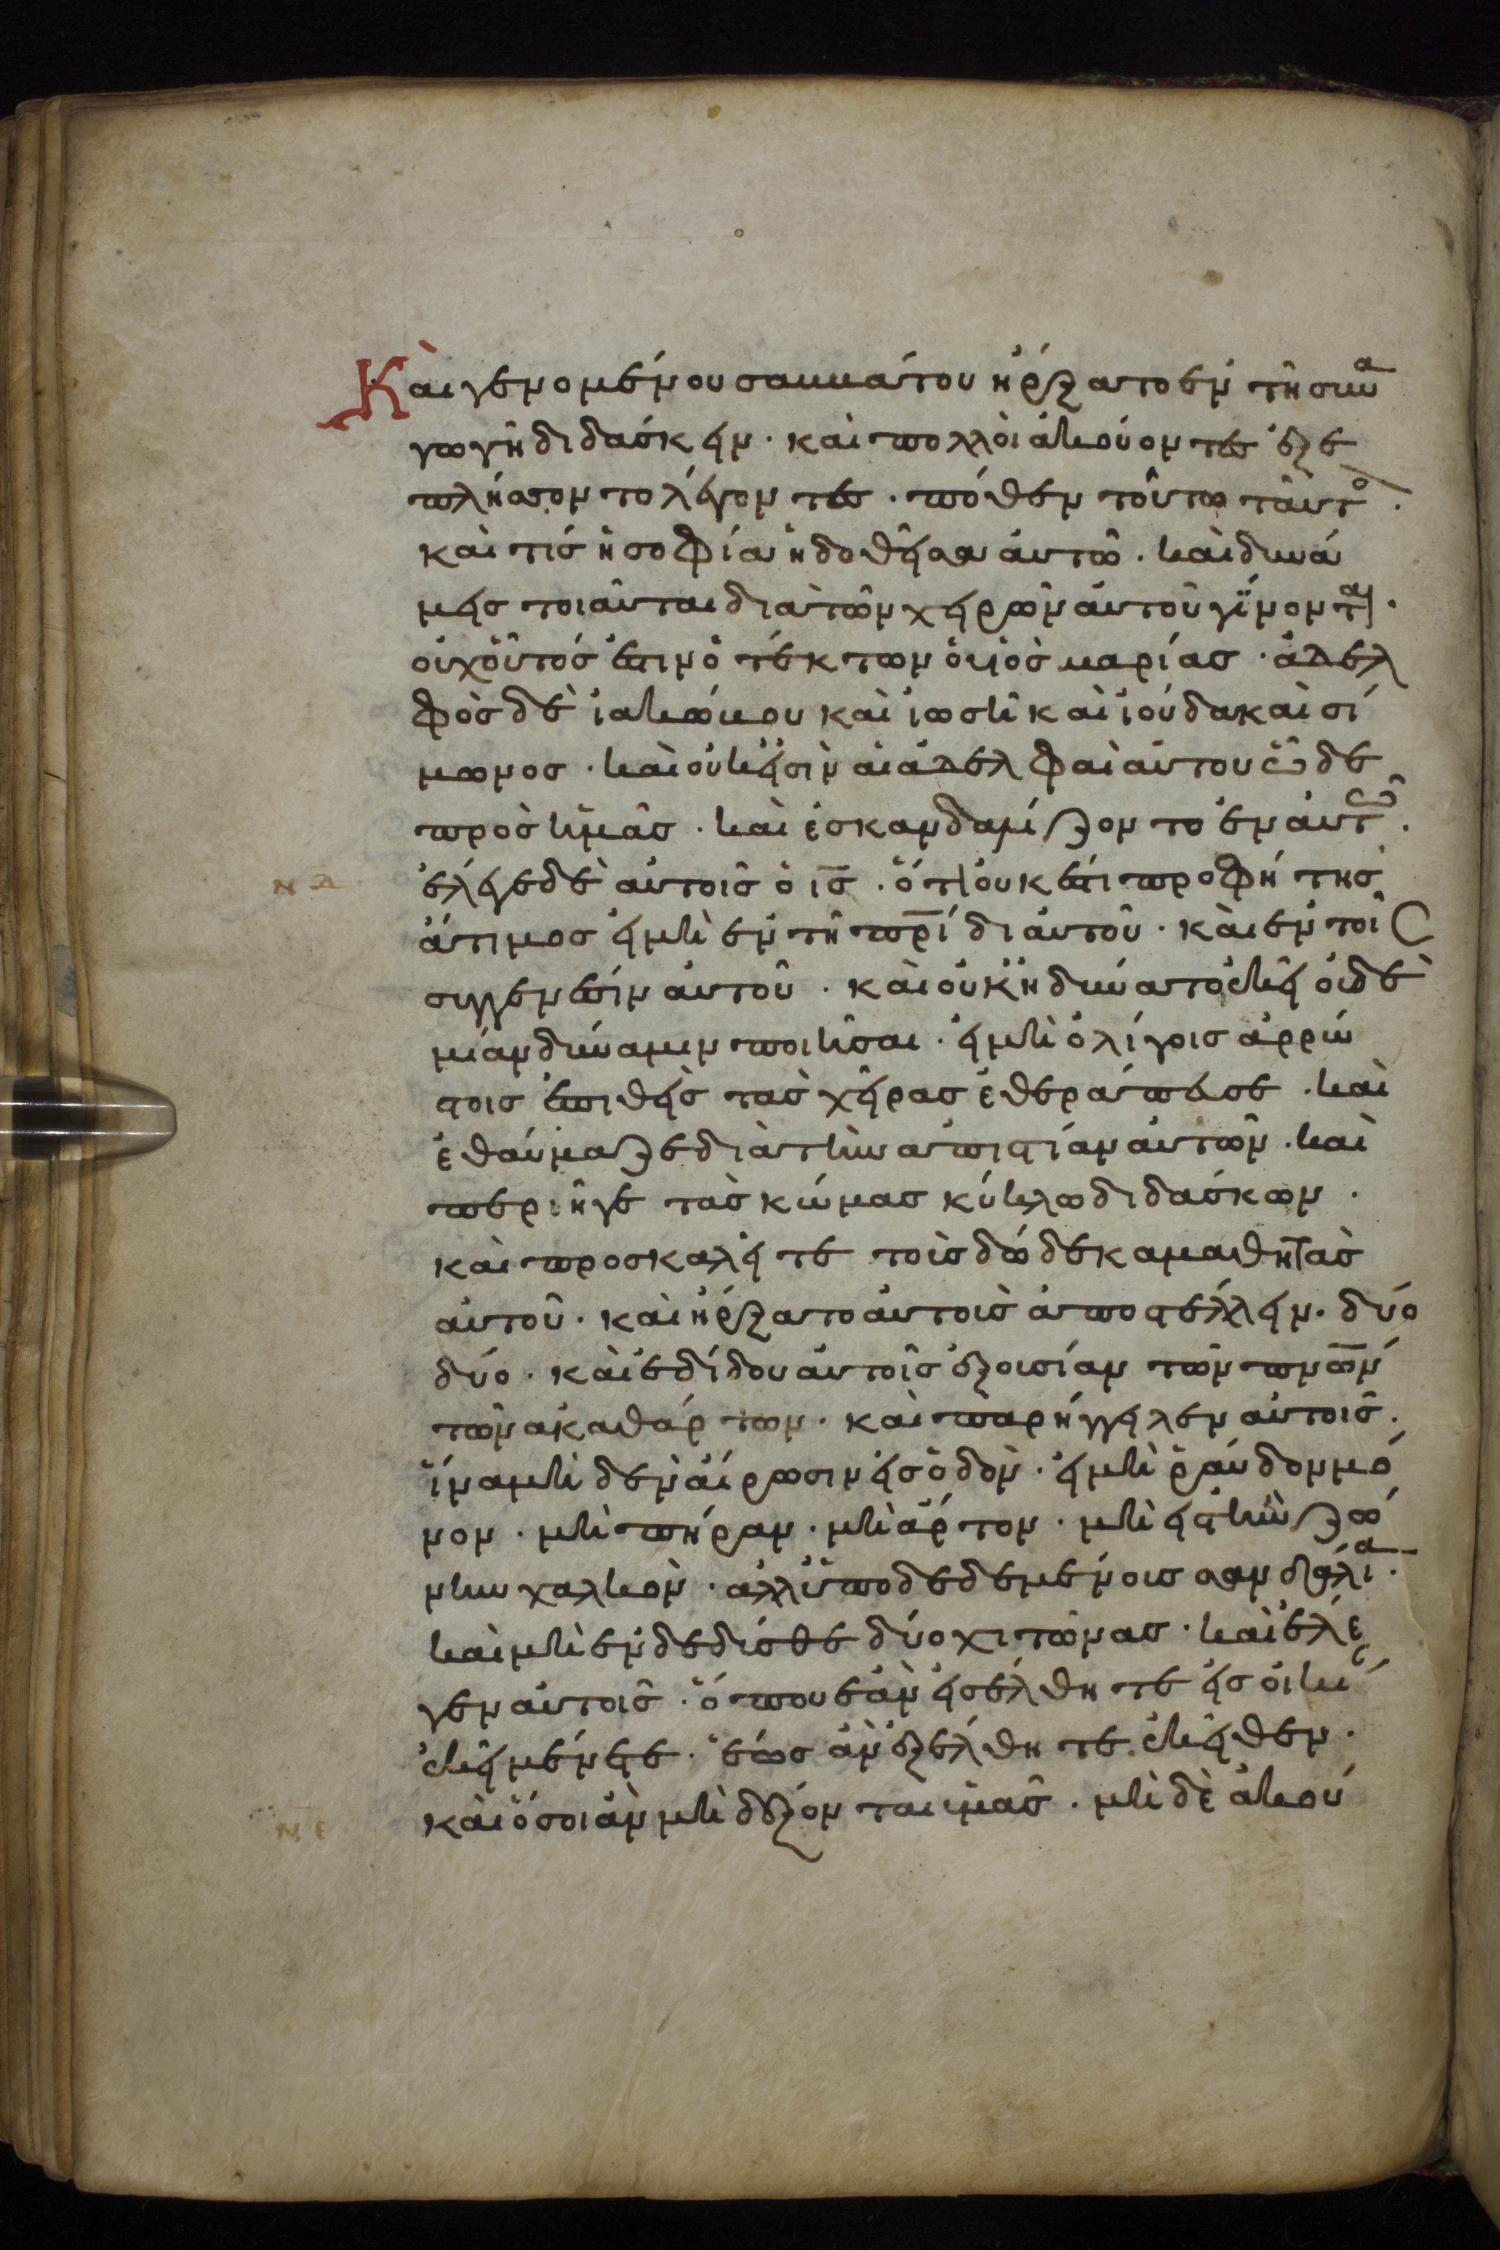 Καὶ γενομένου σαββάτου ἤρξατο ἐν τῆ συνα
γωγῆ διδάσκειν · καὶ πολλοὶ ἀκούοντες ἐξε
πλήσσοντο λέγοντες · πόθεν τοῦτω ταῦτα ·
καὶ τίς ἡ σοφία ἡ δοθεῖσα αὐτῶ · καὶ δυνά
μεις τοιαῦται διὰ τῶν χειρῶν αὐτοῦ γίνονται ·
οὐχ οὗτός ἐστιν ὁ τέκτων ὁ υἱὸς μαρίας · ἀδελ
φὸς δὲ ἰακώβου καὶ ἰωσῆ καὶ ἰούδα καὶ σί
μωνος · καὶ οὐκ εἰσὶν αἱ ἀδελφαὶ αὐτου ὧδε
πρὸς ἡμᾶς · καὶ ἐσκανδαλίζοντο ἐν αὐτῶ ·
ΝΔ
ἔλεγε δὲ αὐτοῖς ὁ ις · ὅτι οὐκ ἔστι προφήτης
ἄτιμος εἰ μὴ ἐν τῆ πρίδι αὐτοῦ · καὶ ἐν τοῖς
συγγενέσιν αὐτοῦ · καὶ οὐκ ἠδύνατο ἐκεῖ οὐδὲ
μίαν δύναμιν ποιῆσαι · εἰ μὴ ὀλίγοις ἀρρώ
στοις ἐπιθεὶς τὰς χεῖρας ἐθεράπευσε · καὶ
ἐθαύμαζε διὰ τὴν ἀπιστίαν αὐτῶν · καὶ
περιῆγε τὰς κώμας κύκλω διδάσκων ·
καὶ προσκαλεῖτε τοὺς δώδεκα μαθητὰς
αὐτοῦ · καὶ ἤρξατο αὐτοὺς ἀποστέλλειν · δύο
δύο · καὶ ἐδίδου αὐτοῖς ἐξουσίαν τῶν πνων
τῶν ἀκαθάρτων · καὶ παρήγγειλεν αὐτοῖς ·
ἵνα μὴ δὲν αἴρωσιν εἰς ὁδὸν · εἰ μὴ ῥάβδον μό
νον · μὴ πήραν · μὴ ἄρτον · μὴ εἰς τὴν ζώ
νην χαλκὸν · ἀλλ' ὑποδεδεμένοις σανδάλια ·
καὶ μὴ ἐνδεδύσθε δύο χιτῶνας · καὶ ἔλε
γεν αὐτοῖς · ὅπου ἐὰν εἰσέλθητε εἰς οἰκί
ἐκεῖ μένετε · ἕως ἂν ἐξέλθητε ἐκεῖθεν ·
ΝΕ
καὶ ὅσοι ἂν μὴ δέξονται ὑμᾶς · μὴ δὲ ἀκού